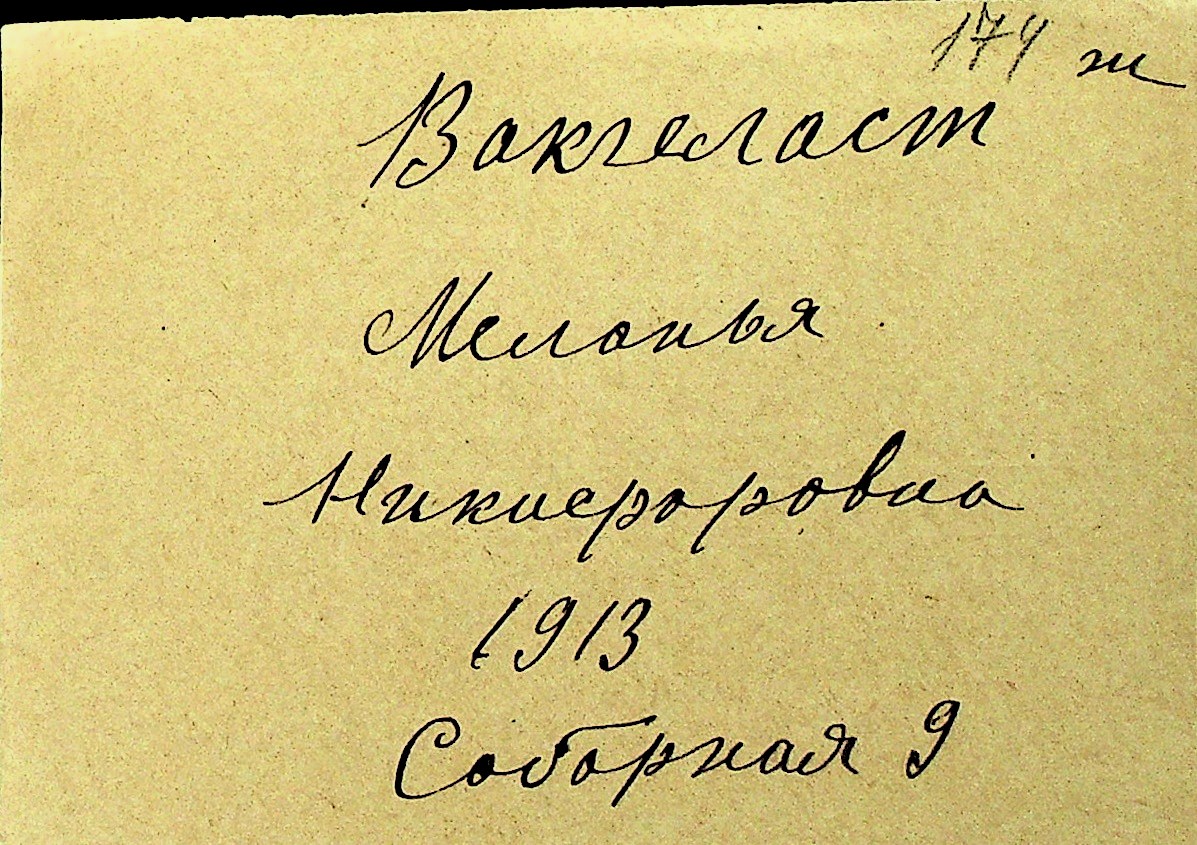 174 ж
Вакгеласт
Меланья
Никифоровна
1913
Соборная 9